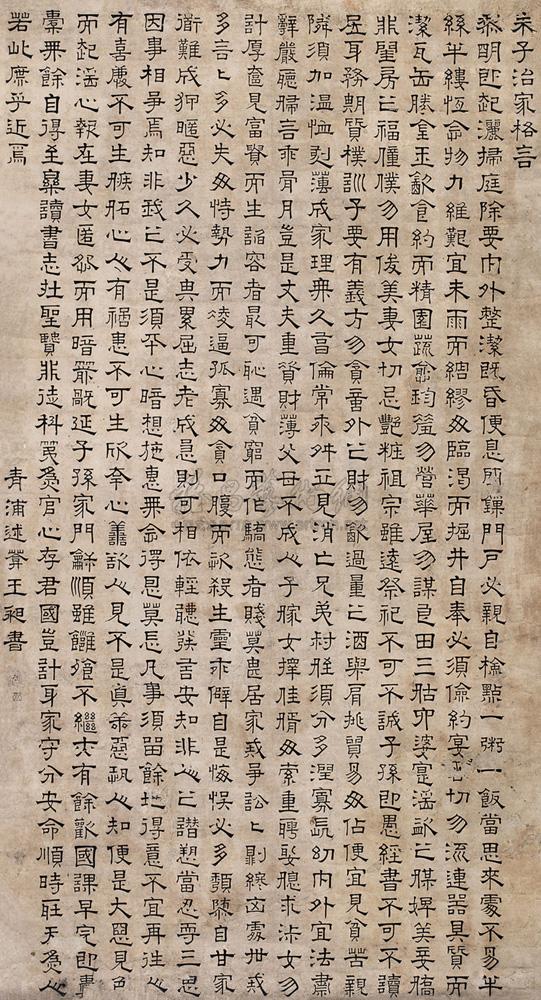 朱子治家格言
黎明即起灑掃庭除要内外整潔既昏便息關鎖門戶必親自檢點一粥一飯當思來處不易半
絲半縷恆念物力維艱宜未雨而綢繆毋臨渴而掘井自奉必須儉約宴客切勿流連器具質而
潔瓦缶勝金玉飲食約而精園蔬愈珍饈勿營華屋勿謀良田三姑六婆寔淫盗之媒婢美妾嬌
非閨房之福僮僕勿用俊美妻女切忌艷粧祖宗雖遠祭祀不可不誠子孫即愚經書不可不讀
居身務期質樸訓子要有義方勿貪意外之財勿飲過量之酒與肩挑貿易毋佔便宜見貧苦親
隣須加温恤刻薄成家理無久享倫常乖舛立見消亡兄弟叔姪須分多潤寡長幼内外宜法肅
辭嚴聽婦言乖骨月豈是丈夫重貲財薄父母不成人子嫁女擇佳婿毋索重聘娶媳求淑女勿
計厚奩見富貴而生諂容者最可恥遇貧窮而作驕態者賤莫甚居家戒爭訟訟則終凶處世戒
多言言多必失毋恃勢力而凌逼孤寡毋貪口腹而恣殺生靈乖僻自是悔悮必多頹隳自甘家
衜難成狎暱惡少久必受其累屈志老成急則可相依輕聽發言安知非人之譖愬當忍耐三思
因事相爭焉知非我之不是須平心暗想施惠無念得恩莫忘凡事須留餘地得意不宜再往人
有喜慶不可生嫉妬心人有禍患不可生欣幸心善欲人見不是真善惡恐人知便是大惡見色
而起淫心報在妻女匿怨而用暗箭禍延子孫家門龢順雖饔飧不繼亦有餘歡國課早完即囊
橐無餘自得至樂讀書志在聖賢非徒科第爲官心存君國豈計身家守分安命順時聽天爲人
若此庶乎近焉
青浦述菴王昶書